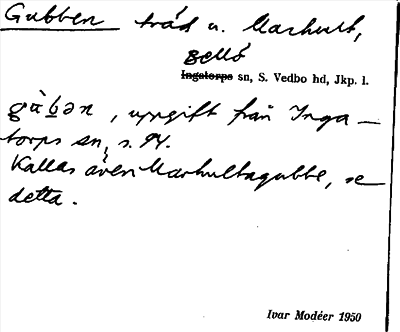 Gubben träd u. Marhult,
Bellö
Ingatorps sn, S. Vedbo hd, Jkp. l.
gùbən, uppgift från Inga-
torps sn, s. 94.
Kallas även Marhultagubbe, se
detta.
Ivar Modéer 1950